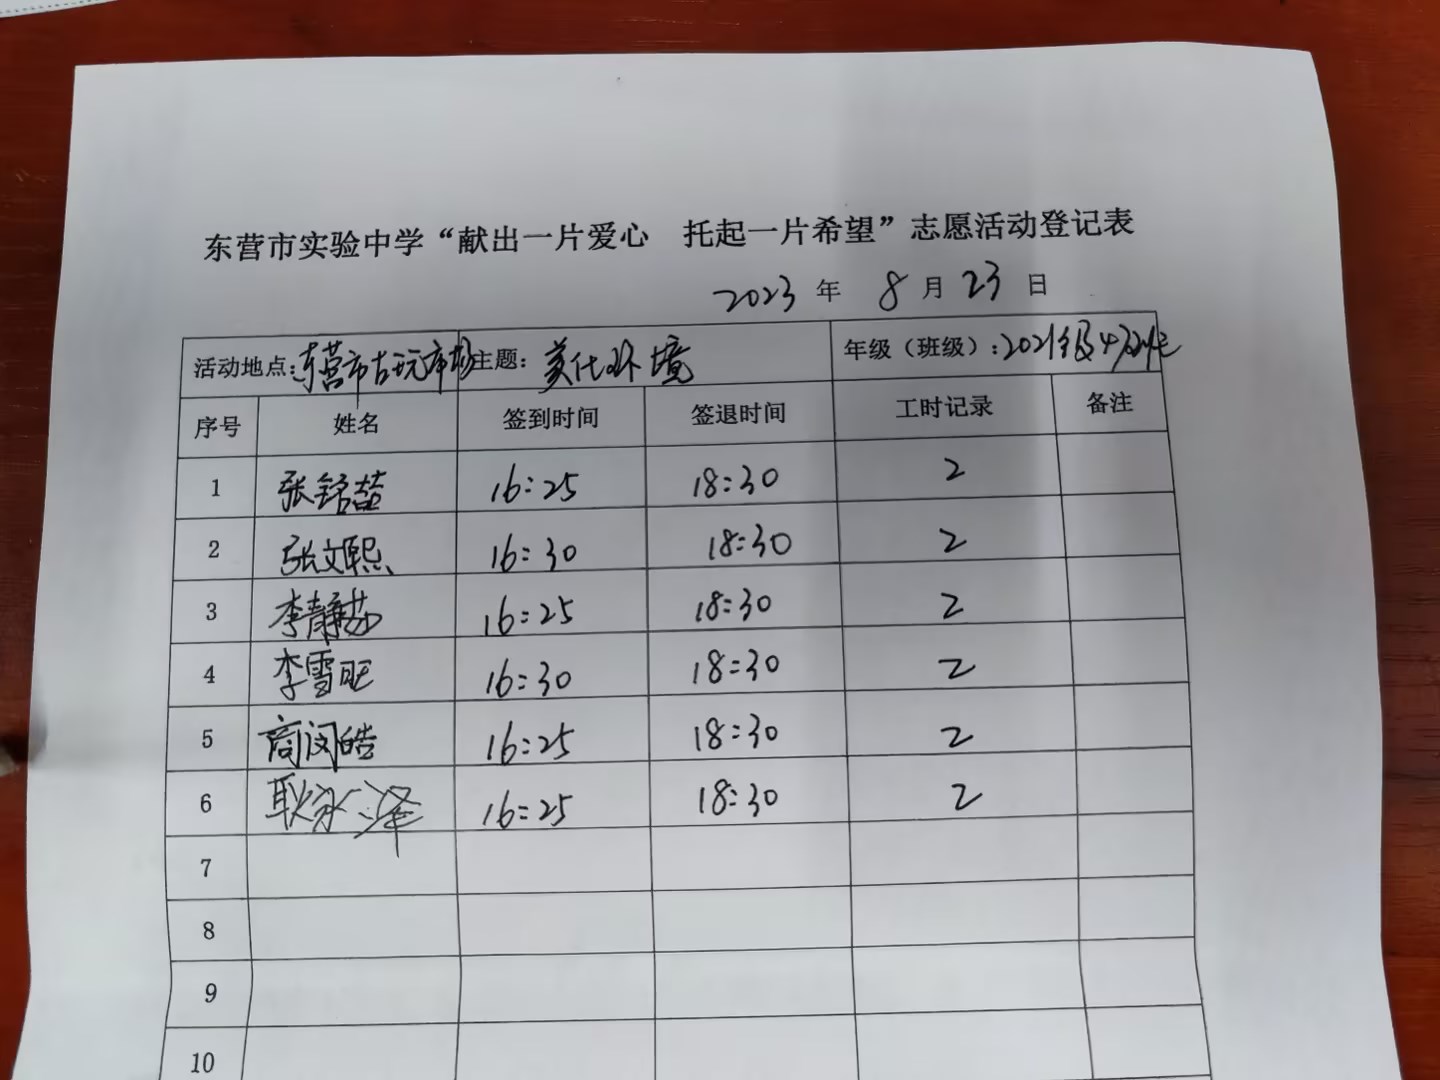 东营市实验中学“献出一片爱心 托起一片希望”志愿活动登记表
2023 年 8 月 23 日
活动地点：东营市古玩市场 主题： 美化环境 年级（班级）：2021级4
序号 姓名 签到时间 签退时间 工时记录 备注
1 张铭喆 16:25 18:30 2
2 张文熙 16:30 18:30 2
3 李静 16:25 18:30 2
4 李雪旺 16:30 18:30 2
5 商闵皓 16:25 18:30 2
6 耿永泽 16:25 18:30 2
7
8
9
10